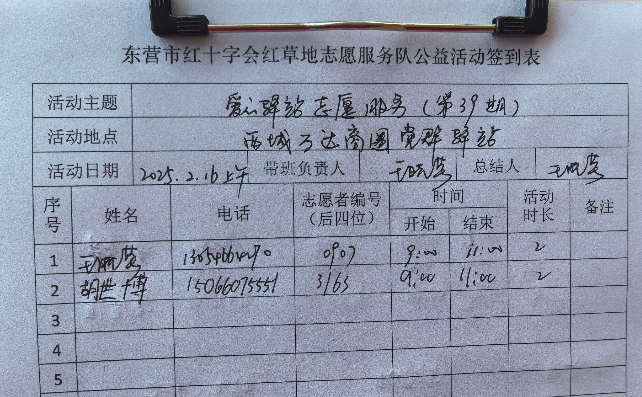 东营市红十字会红草地志愿服务队公益活动签到表
活动主题 爱心驿站志愿服务（第39期）
活动地点 西城万达商圈党群驿站
活动日期 2025.2.16上午 带班负责人 总结人
序号 姓名 电话 志愿者编号（后四位） 时间 开始 结束 活动时长 备注
1 0907 9:00 11:00 2
2 胡世博 15066075551 3163 9:00 11:00 2
3
4
5